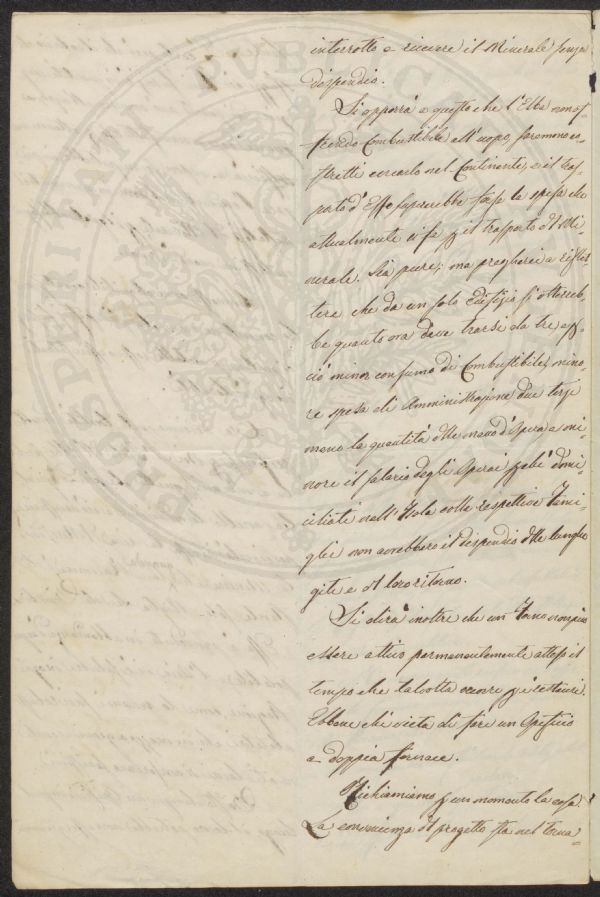 interrotto a ricevere il Minerale senza
dispendio.
Si opporrà a questo che l'Elba non os-
tenendo Combustibile all'uopo, saremmo co-
stretti cercarlo nel Continente, e il tras-
porto d'Esso supererebbe forse la spesa che
attualmente si fa p il trasporto del Mi-
nerale. Sia pure; ma pregherei a riflet-
tere che da un solo Edifizio si otterreb-
be quanto ora deve trarsi da tre e p
ciò minor consumo di Combustibile, mino-
re spesa di Amministrazione due terzi
meno la quantità delle mano d'Opera e mi-
nore il salario degli Operai p chè domi-
ciliati nell'Isola colle respettive Fami-
glie non avrebbero il dispendio delle lunghe
gite e del loro ritorno.
Si dirà inoltre che un Forno non può
essere attivo permanentemente atteso il
tempo che talvolta occorre p i restauri.
Ebbene chi vieta di fare un Opificio
a doppia fornace.
Richiamiamo p un momento la cosa.
La convenienza del progetto sta nel torna-